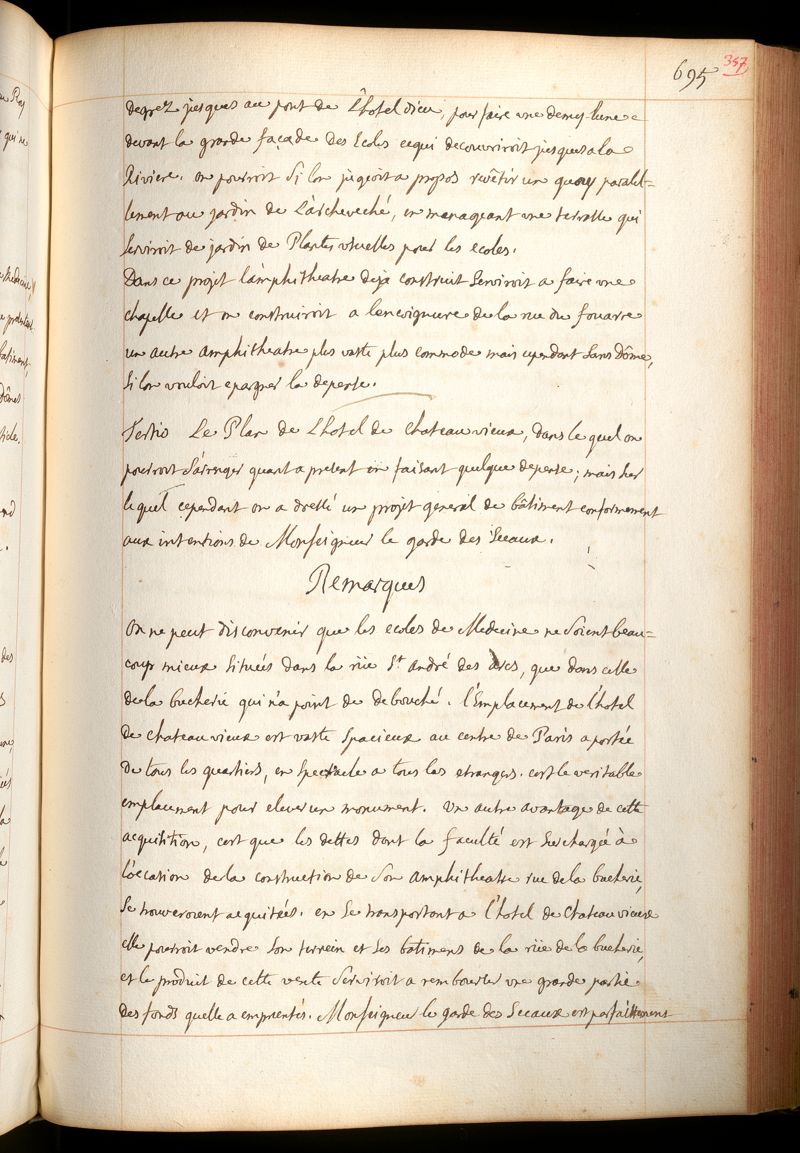 695 357
degrez jusques au pont de L'hotel dieu, pour faire une demy-lune
devant la grande façade des Ecoles cequi decouvriroit jusquesala
Riviere. on pourroit Si lon jugeoit a propos revêtir un quay paralel=
lement au jardin de L'archeveché, en menageant une terrasse qui
Serviroit de jardin de Plantes usuelles pour les ecoles.
Dans ce projet l'amphitheatre deja construit Serviroit a faire une
chapelle et on construiroit a lencoignure de la rue du fouarre
un autre amphitheatre plus vaste plus commode mais cependant Sans Dôme,
Si lon vouloit epargner la depense.
Tertio Le Plan de L'hotel de Chateauvieux, dans le quel on
pourroit S'arrenger quant a present en faisant quelque depense; mais sur
le quel cependant on a dressé un projet general de bâtiment conformement
aux intentions de Monseigneur le garde des Sceaux.
Remarques
On ne peut disconvenir que les ecoles de Medecine ne Soient beau=
coup mieux Situées dans la rüe St andré des arcs, que dans celle
de la bucherie qui n'a point de debouché. l'Emplacement de l'hotel
de chateauvieux est vaste Spacieux au centre de Paris a portée
de tous les quartiers, en Spectacle a tous les etrangers. cest le veritable
emplacement pour elever un monument. Un autre avantage de cette
acquisition, cest que les dettes dont la faculté est Surchargée à
l'occasion de la construction de Son amphitheatre rue de la bucherie,
Se trouveroient acquitées. en Se transportant a l'hotel de Chateauvieux
elle pourroit vendre Son terrein et Ses batimens de la rüe de la bucherie,
et le produit de cette vente Serviroit a rembourser une grande partie
des fonds quelle a empruntés. Monseigneur le garde des Sceaux est parfaittement